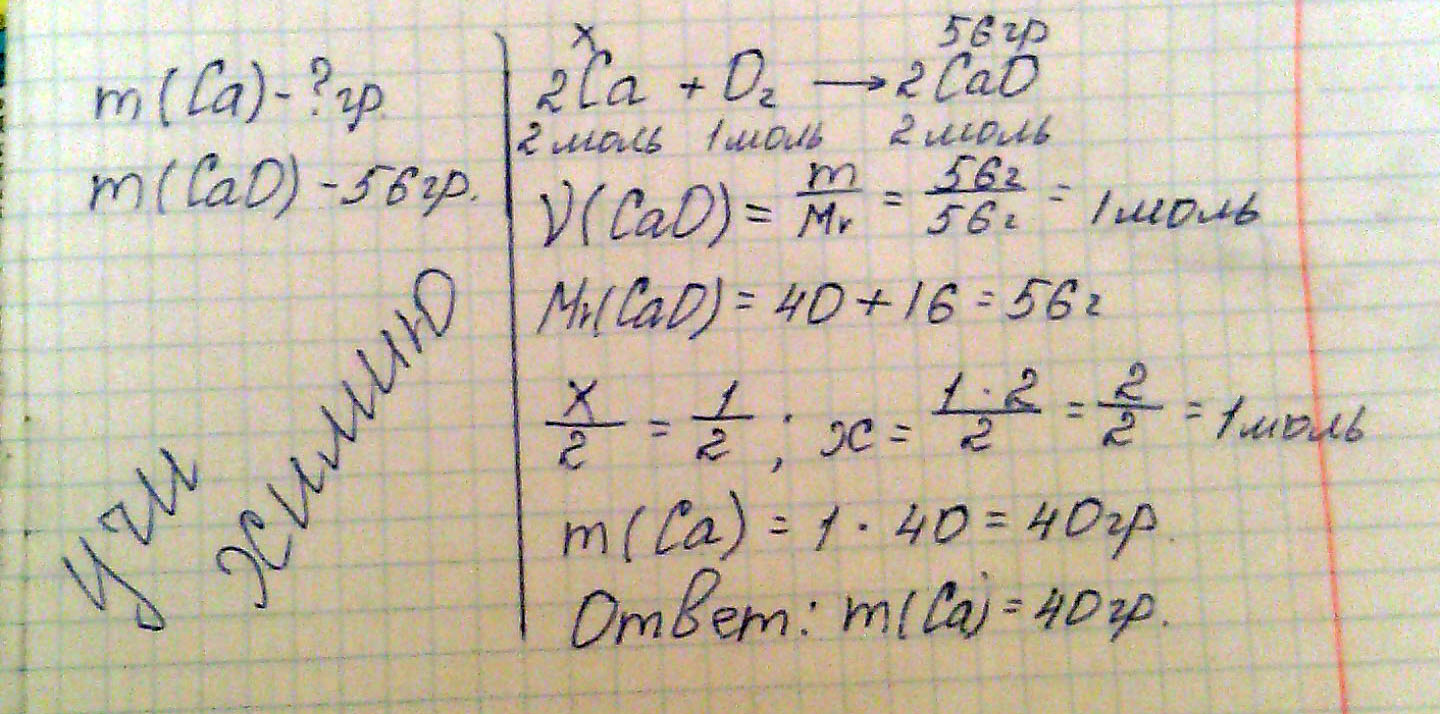 m(Ca) - ? гр.
m(CaO) - 56 гр.
учи
химию
x 56 гр
2Ca + O₂ → 2CaO
2 моль 1 моль 2 моль
ν(CaO) = m/Mr = 56г/56г = 1 моль
Mr(CaO) = 40 + 16 = 56 г
x/2 = 1/2 ; x = 1·2/2 = 2/2 = 1 моль
m(Ca) = 1 · 40 = 40 гр.
Ответ: m(Ca) = 40 гр.